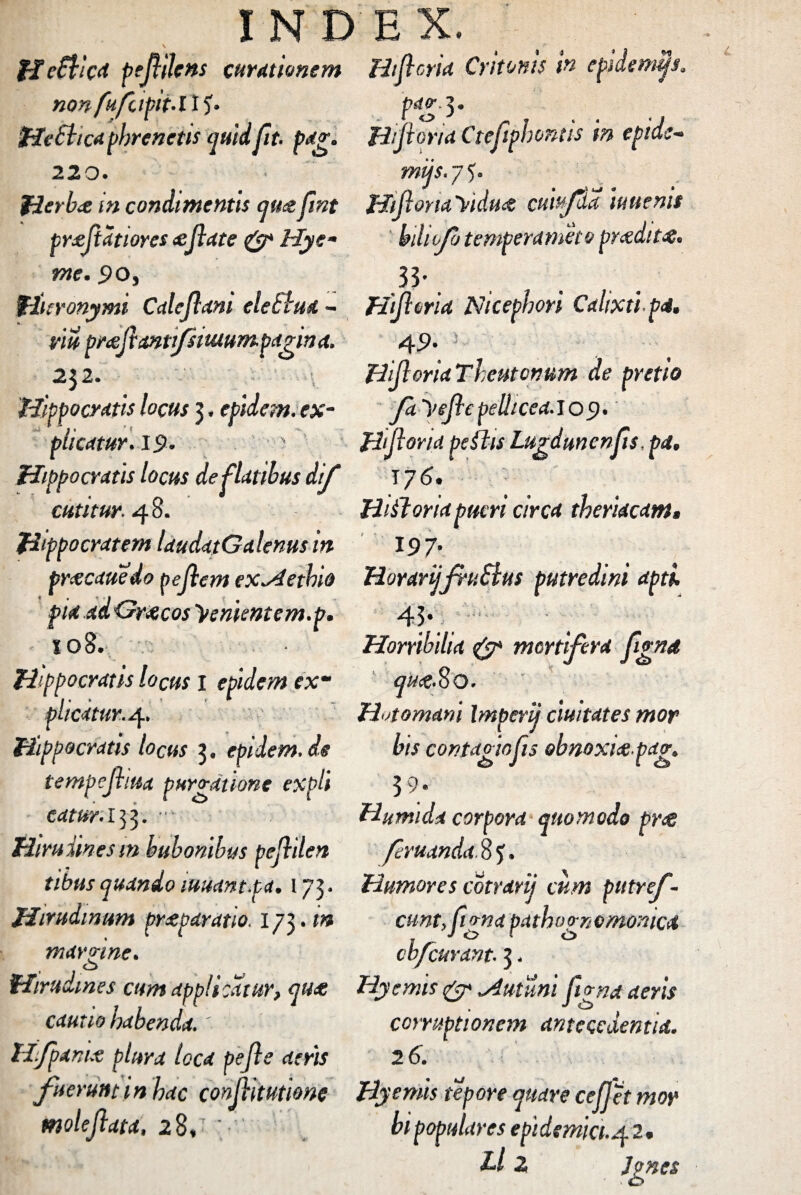 INDEX.
Hectica pestilens curationem
non suscipit. 115.
Hectica phrenetis quid sit. pag.
220.
Herbæ in condimentis quæ sint
præstatiores æstate & Hye-
me. 90,
Hieronymi Calestani electua-
riũ præstantissimum. pagina.
232.
Hippocratis locus 3. epidem. ex-
plicatur. 19.
Hippocratis locus de flatibus dis
cutitur. 48.
Hippocratem laudat Galenus in
præcauẽdo pestem ex Aethio
pia ad Græcos venientem. p.
108.
Hippocratis locus 1 epidem ex-
plicatur. 4.
Hippocratis locus 3. epidem. de
tempestiua purgatione expli
catur. 133.
Hirudines in bubonibus pestilen
tibus quando iuuant. pa. 173.
Hirudinum præparatio. 173. in
margine.
Hirudines cum applicãtur, quæ
cautio habenda.
Hispaniæ plura loca peste aeris
fuerunt in hac constitutione
molestata. 28,
Historia Critonis in epidemijs.
pag. 3.
Historia Ctesiphontis in epide-
mijs. 75.
Historia viduæ cuiusdã iuuenis
bilioso temperamẽto præditæ.
33.
Historia Nicephori Calixti. pa.
49.
Historia Theutonum de pretio
sa veste pellicea. 109.
Historia pestis Lugdunensis. pa.
176.
Historia pueri circa theriacam.
197.
Horarij fructus putredini apti.
43.
Horribilia & mortifera signa
quæ. 80.
Hotomani Imperij ciuitates mor
bis contagiosis obnoxiæ. pag.
39.
Humida corpora quomodo præ
seruanda. 85.
Humores cõtrarij cùm putres-
cunt, signa pathognomonica
obscurant. 3.
Hyemis & Autũni signa aeris
corruptionem antecedentia.
26.
Hyemis tẽpore quare cesset mor
bi populares epidemici. 42.
Ll 2 Ignes